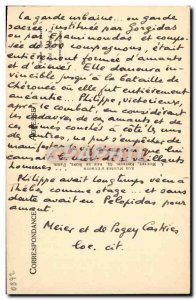 La garde urbaine... ou garde
sacrée, instituée par Gorgidas
ou par Epaminondas et compo-
sée de 300 compagnons, était
entièrement formée d'amants
et d'aimés. Elle demeura in-
vincible jusqu'à la bataille de
Chéronée où elle fut entièrement
anéantie. Philippe victorieux,
après ce combat, en considérant
les cadavres de ces amants et de
ces aimés couchés à côté les uns
des autres, ne put s'empêcher de
hommes
Philippe avait longtemps vécu à
Thèbes comme otage... et sans
doute avait vu Pélopidas pour
amant.
Meier et de Pogey-Castries
loc. cit.
CORRESPONDANCE